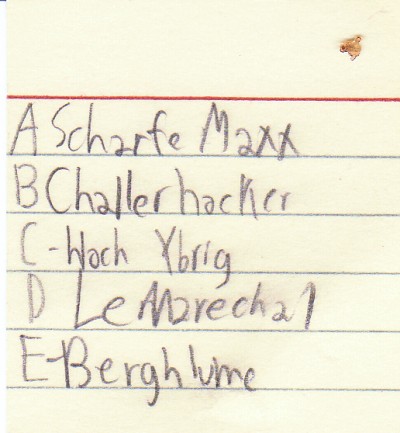 A Scharfe Maxx
B Challerhocker
C - Hoch Ybrig
D Le Marechal
E - Bergblume